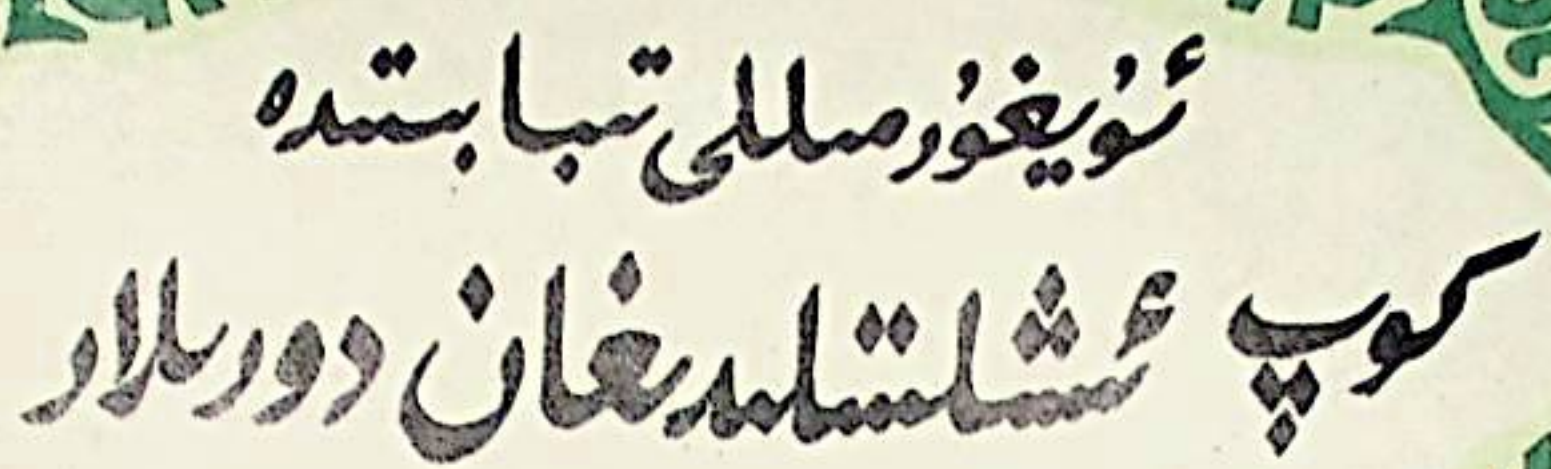 ئۇيغۇر مىللىي تىبابىتىدە
كۆپ ئىشلىتىلىدىغان دورىلار